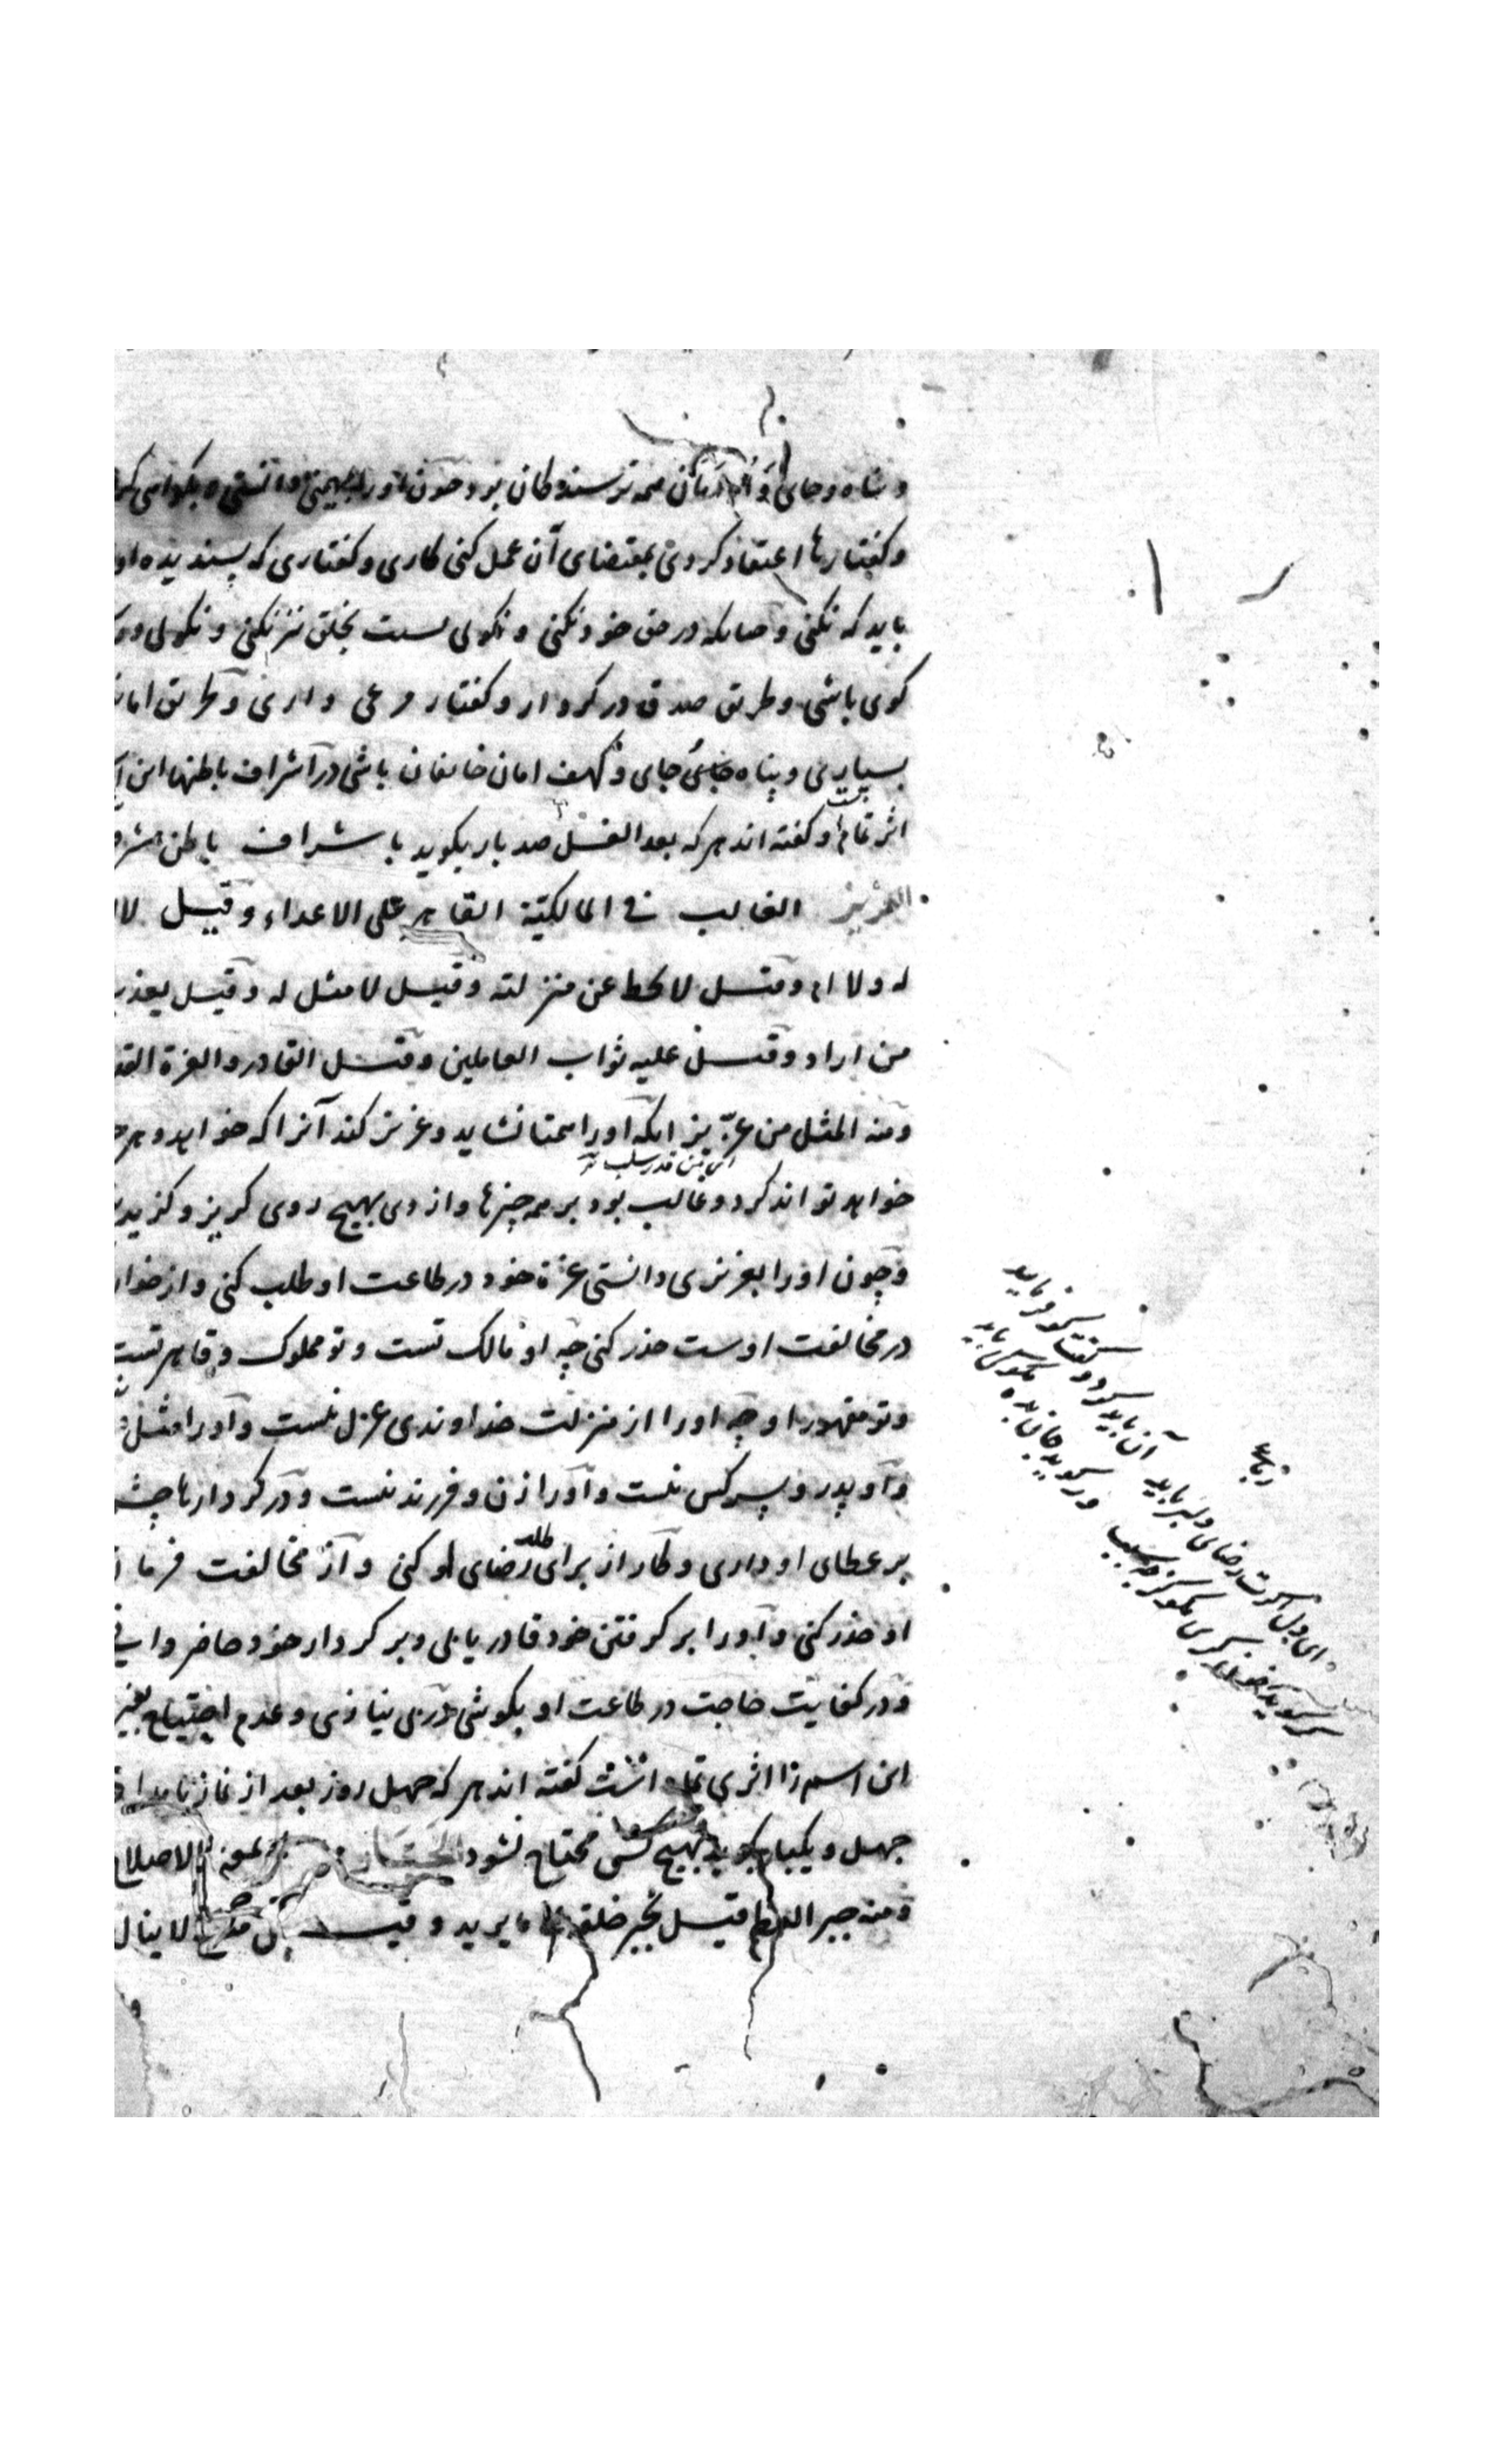 و پناه و جای و امان همه ترسندکان بود چون او را بمهیمنی دانستی
و کفتارها اعتقاد کردی بمقتضای آن عمل کنی کاری و کفتاری که پسندیده او
باید که نکنی و چنانکه در حق خود نکنی و نکوئی نسبت بخلق نیز نکنی و نکوئی
کوی باشی و طریق صدق در کردار و کفتار مرعی داری و طریق
بسپاری و پناه جای و کهف امان خائفان باشی در اشراف باطنها این
اثر تمام است و کفته اند هر که بعد الغسل صد بار بکوید با شراف باطن
العزیز الغالب فی المالکیّة القاهر علی الاعداء و قیل لا
له ولا اب و قیل لا یحط عن منزلته و قیل لا مثل له و قیل یعذب
من اراد و قیل علیه ثواب العاملین و قیل القادر و العزة القدرة
و منه المثل من عزّ بزّ آنکه او را همتا نشاید و عزیز کند آنرا که خواهد و هر چه
ای من قدر سلب
خواهد تواند کرد و غالب بود بر همه چیزها و از وی بهیچ روی کریز و کزیر
و چون او را بعزیزی دانستی عزة خود در طاعت او طلب کنی و از خواری
در مخالفت اوست حذر کنی چه او مالک تست و تو مملوک و قاهر تست
و تو مقهور او چه او را از منزلت خداوندی عزل نیست و او را مثل
و او پدر و پسر کس نیست و او را زن و فرزند نیست و در کردارها چشم
بر عطای او داری و کار از برای طلب رضای او کنی و از مخالفت فرمان
او حذر کنی و او را بر کرفتن خود قادر یابی و بر کردار خود حاضر دانی
و در کفایت حاجت در طاعت او بکوشی در بی نیازی و عدم احتیاج بغیر
این اسم را اثری تمام است کفته اند هر که چهل روز بعد از نماز بامداد
چهل و یکبار بکوید بهیچ کس محتاج نشود الجبار بمعنی الاصلاح
و منه جبر العظم قیل یجبر خلقه ما یرید و قیل لا ینال
رباعی
ای دل اکرت رضای دلبر باید آن باید کرد و کفت کو فرماید
کر کوید خون کری مکو کز چه سبب ور کوید جان بده مکو کی باید